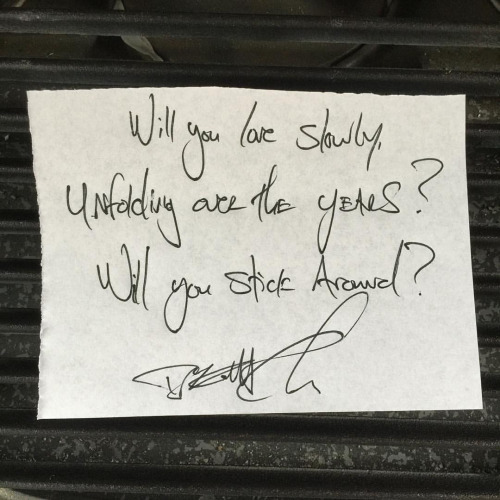 Will you love slowly,
Unfolding over the years?
Will you stick around?